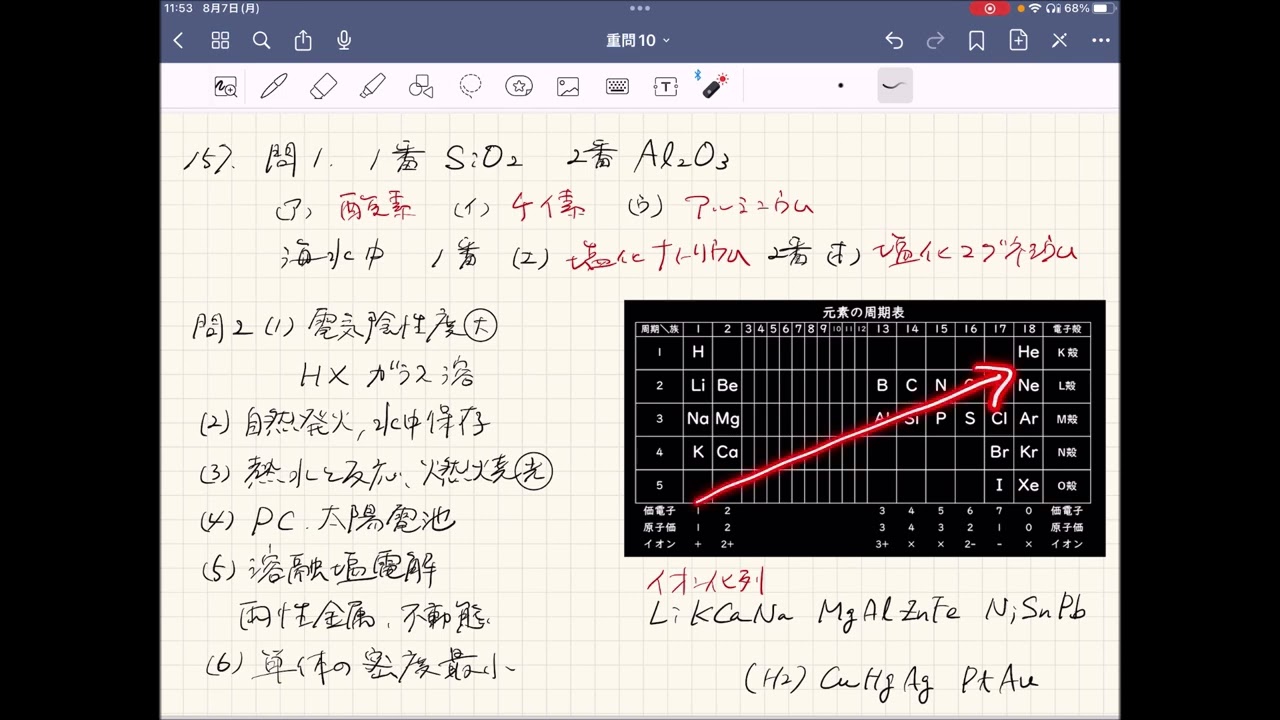 11:53 8月7日(月)
68%
重問10
157. 問1. 1番 SiO2 2番 Al2O3
(ア) 酸素 (イ) ケイ素 (ウ) アルミニウム
海水中 1番 (エ) 塩化ナトリウム 2番 (オ) 塩化マグネシウム
問2 (1) 電気陰性度大
HX ガラス溶
(2) 自然発火, 水中保存
(3) 熱水と反応、燃焼光
(4) PC. 太陽電池
(5) 溶融塩電解
両性金属、不動態
(6) 単体の密度最小
元素の周期表
周期\族 1 2 3 4 5 6 7 8 9 10 11 12 13 14 15 16 17 18 電子殻
1 H He K殻
2 Li Be B C N Ne L殻
3 Na Mg Al Si P S Cl Ar M殻
4 K Ca Br Kr N殻
5 I Xe O殻
価電子 1 2 3 4 5 6 7 0 価電子
原子価 1 2 3 4 3 2 1 0 原子価
イオン + 2+ 3+ × × 2- - × イオン
イオン化列
Li K Ca Na Mg Al Zn Fe Ni Sn Pb
(H2) Cu Hg Ag Pt Au